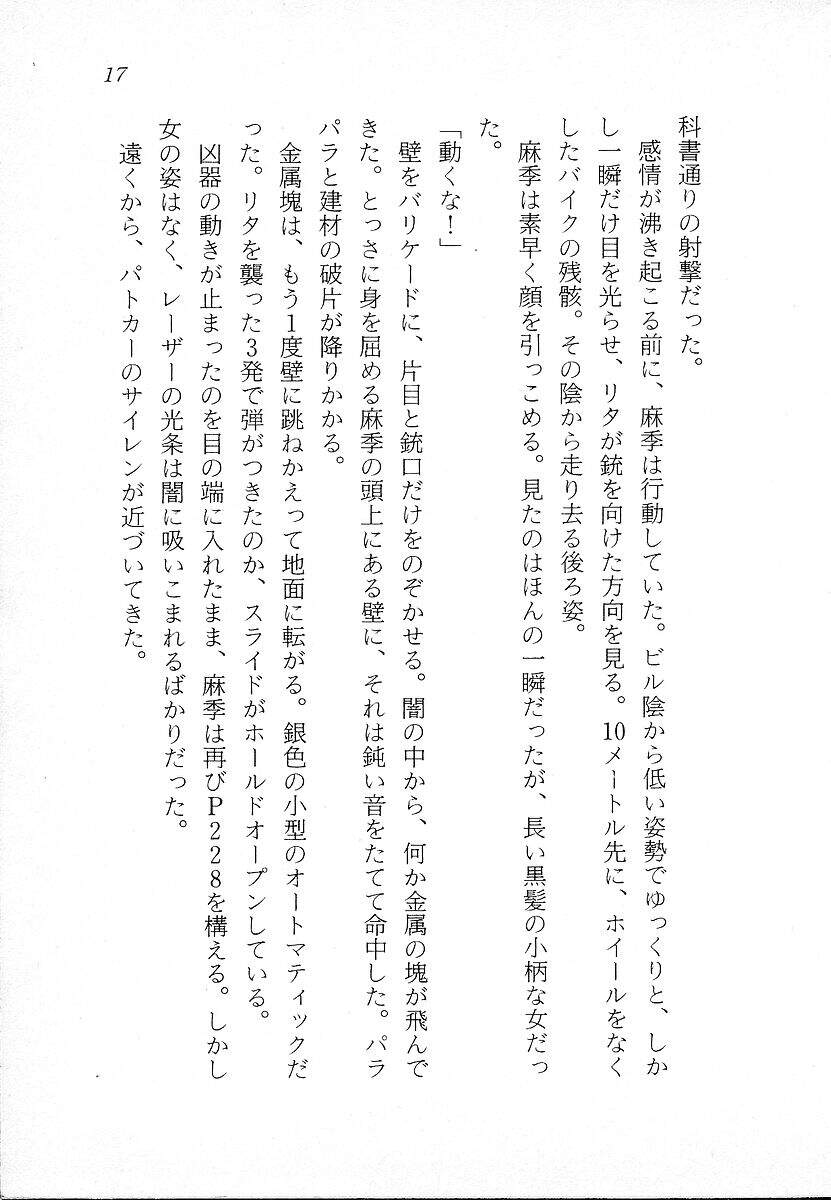 17
科書通りの射撃だった。
感情が沸き起こる前に、麻季は行動していた。ビル陰から低い姿勢でゆっくりと、しか
し一瞬だけ目を光らせ、リタが銃を向けた方向を見る。10メートル先に、ホイールをなく
したバイクの残骸。その陰から走り去る後ろ姿。
麻季は素早く顔を引っこめる。見たのはほんの一瞬だったが、長い黒髪の小柄な女だっ
た。
「動くな！」
壁をバリケードに、片目と銃口だけをのぞかせる。闇の中から、何か金属の塊が飛んで
きた。とっさに身を屈める麻季の頭上にある壁に、それは鈍い音をたてて命中した。パラ
パラと建材の破片が降りかかる。
金属塊は、もう1度壁に跳ねかえって地面に転がる。銀色の小型のオートマティックだ
った。リタを襲った3発で弾がつきたのか、スライドがホールドオープンしている。
凶器の動きが止まったのを目の端に入れたまま、麻季は再びP228を構える。しかし
女の姿はなく、レーザーの光条は闇に吸いこまれるばかりだった。
遠くから、パトカーのサイレンが近づいてきた。